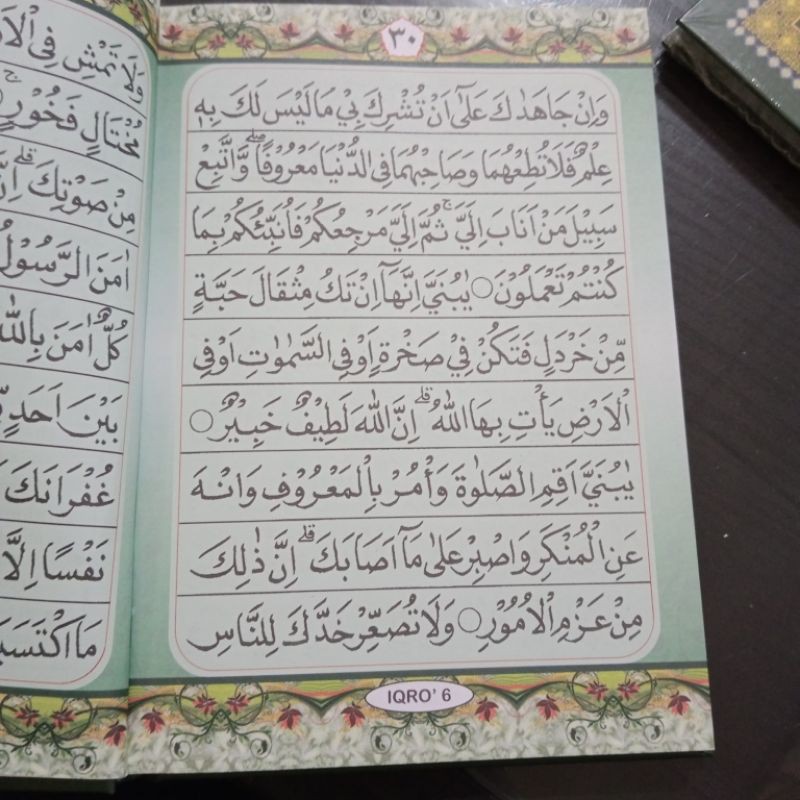 ٣٠
وَاِنْ جَاهَدٰكَ عَلٰٓى اَنْ تُشْرِكَ بِيْ مَا لَيْسَ لَكَ بِهٖ
عِلْمٌ فَلَا تُطِعْهُمَا وَصَاحِبْهُمَا فِى الدُّنْيَا مَعْرُوْفًاۖ وَّاتَّبِعْ
سَبِيْلَ مَنْ اَنَابَ اِلَيَّۚ ثُمَّ اِلَيَّ مَرْجِعُكُمْ فَاُنَبِّئُكُمْ بِمَا
كُنْتُمْ تَعْمَلُوْنَ ○ يٰبُنَيَّ اِنَّهَآ اِنْ تَكُ مِثْقَالَ حَبَّةٍ
مِّنْ خَرْدَلٍ فَتَكُنْ فِيْ صَخْرَةٍ اَوْ فِى السَّمٰوٰتِ اَوْ فِى
الْاَرْضِ يَأْتِ بِهَا اللّٰهُۗ اِنَّ اللّٰهَ لَطِيْفٌ خَبِيْرٌ ○
يٰبُنَيَّ اَقِمِ الصَّلٰوةَ وَأْمُرْ بِالْمَعْرُوْفِ وَانْهَ
عَنِ الْمُنْكَرِ وَاصْبِرْ عَلٰى مَآ اَصَابَكَۗ اِنَّ ذٰلِكَ
مِنْ عَزْمِ الْاُمُوْرِ ○ وَلَا تُصَعِّرْ خَدَّكَ لِلنَّاسِ
IQRO' 6
وَلَا تَمْشِ فِى
مُخْتَالٍ فَخُوْرٍۚ
مِنْ صَوْتِكَۗ
اٰمَنَ الرَّسُوْلُ
كُلٌّ اٰمَنَ بِاللّٰهِ
بَيْنَ اَحَدٍ
غُفْرَانَكَ
نَفْسًا اِلَّا
مَا اكْتَسَبَ